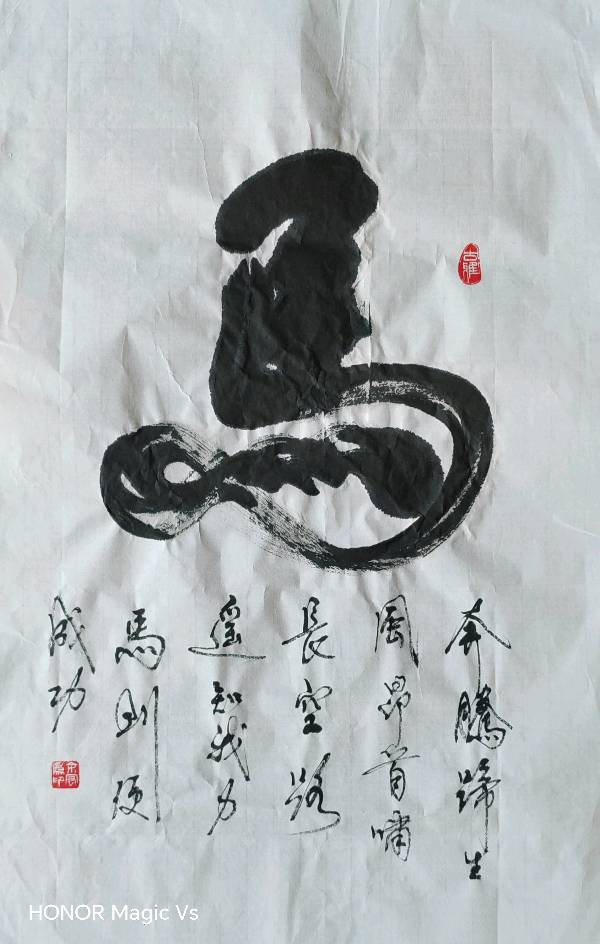 馬
奔騰蹄生
風昂首嘯
長空路
遥知我力
馬到便
成功
HONOR Magic Vs